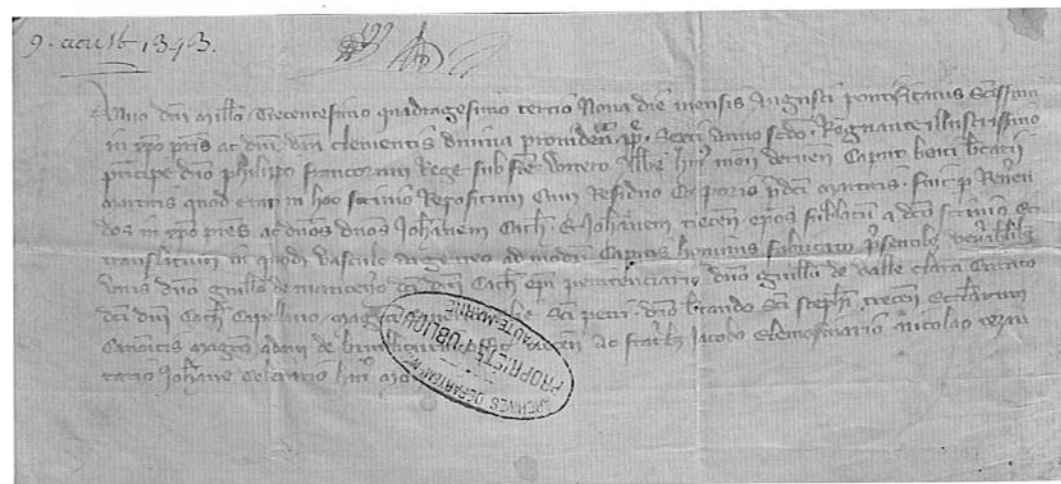 9. aoust 1343.
Anno dni mill'o Trecentesimo quadragesimo tercio Nona die mensis Augusti pontificatus Scissimi
in xpo pris ac dni dni clementis divina providen pp. Sexti Anno scdo. Regnante illustrissimo
principe dno philippo francorum Rege sub fre abbe hui' mon derven Caput beati bercarii
martiris quod erat in hoc scrinio Repositum Cum Residuo Corporis pdci martiris. fuit p Reveren
dos in xpo pres ac dnos dnos Joh'anem Cath'. & Joh'anem trecen epos sublatum a dco scrinio Et
translatum in quod vasculo argenteo ad modum Capitis hominis fabricato psentib' ven'abilib'
viris dno guill'o de dci dni Cath' epi penitenciario dno guill'o de valle clara Curato
dci dni Cath' Capellano sci petri dno sci steph'i trecen Eccl'iarum
Canonicis magro de ac fratrib' Jacobo Elemosinario nicolao
rario Joh'ane Celerario hui'
ARCHIVES DEPARTEMENTALES
HAUTE-MARNE
PROPRIÉTÉ PUBLIQUE